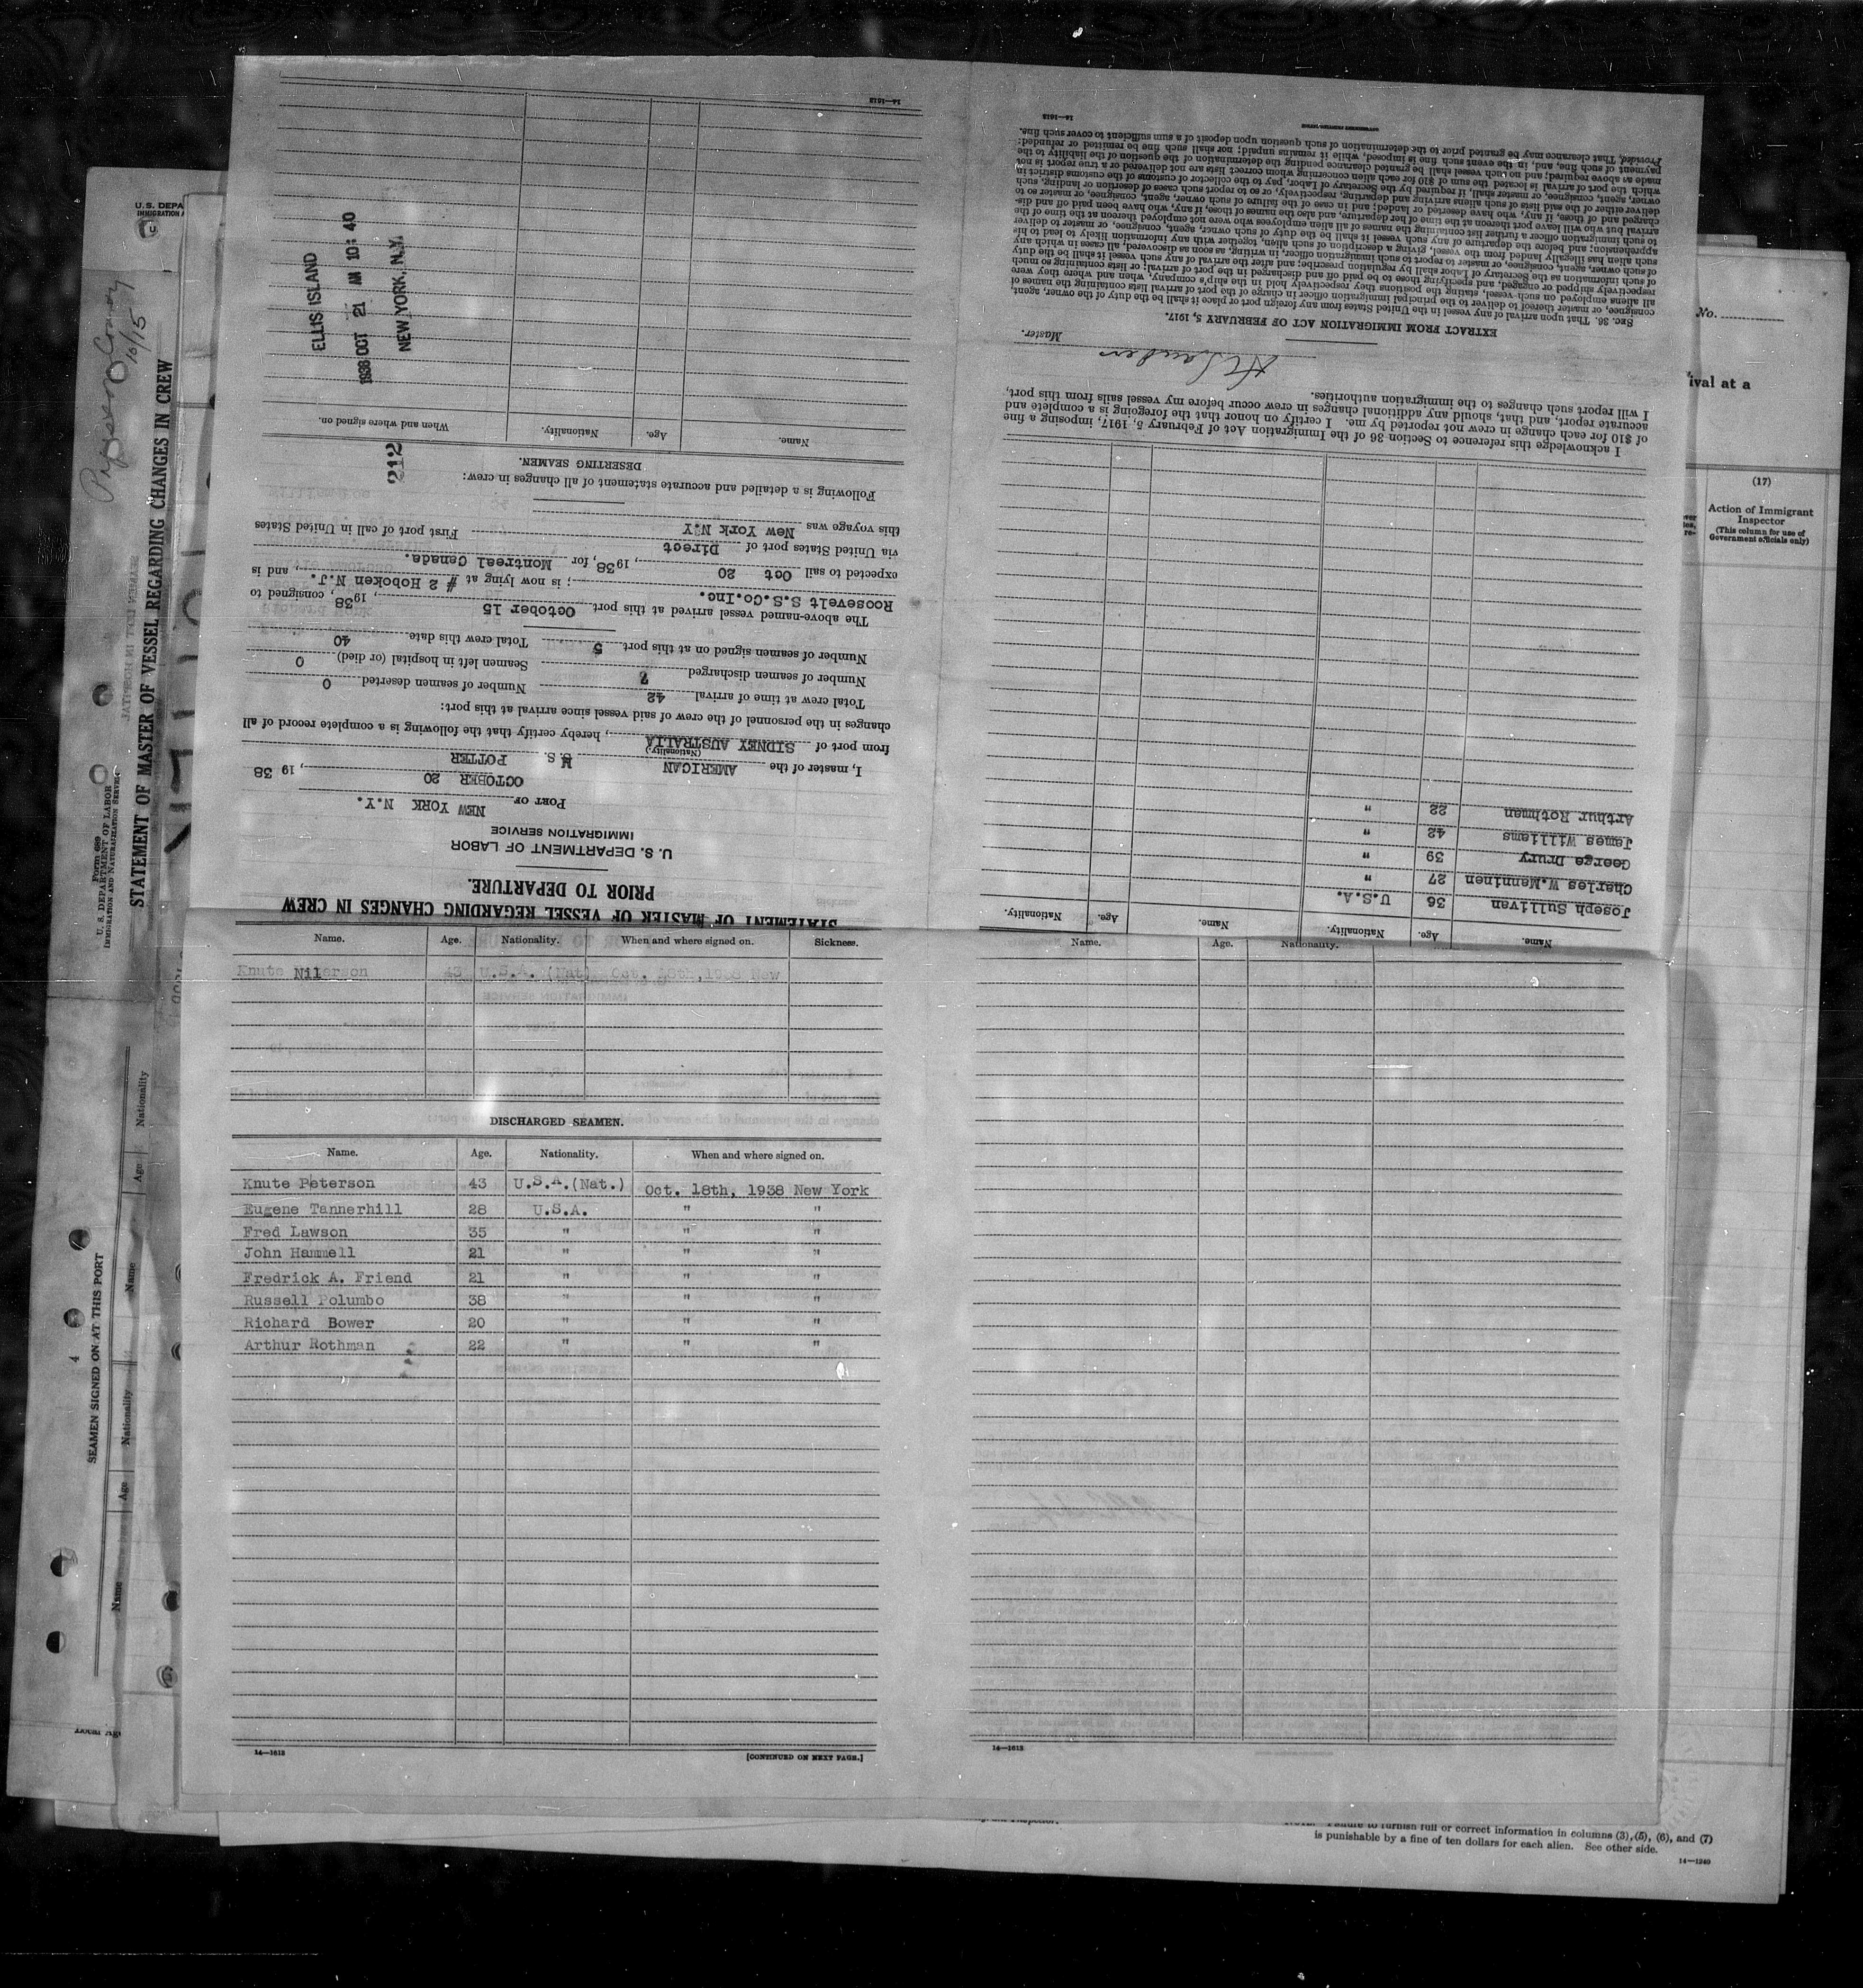 STATEMENT OF MASTER OF VESSEL REGARDING CHANGES IN CREW
PRIOR TO DEPARTURE.
U. S. DEPARTMENT OF LABOR
IMMIGRATION SERVICE
PORT OF NEW YORK N.Y.
OCTOBER 20, 1938
I, master of the AMERICAN U.S. POTTER
(Nationality)
from port of SIDNEY AUSTRALIA, hereby certify that the following is a complete record of all
changes in the personnel of the crew of said vessel since arrival at this port:
Total crew at time of arrival 42 Number of seamen deserted 0
Number of seamen discharged 7 Seamen left in hospital (or died) 0
Number of seamen signed on at this port 5 Total crew this date 40
The above-named vessel arrived at this port October 15, 1938, consigned to
Roosevelt S.S.Co.Inc.; is now lying at # 2 Hoboken N.J., and is
expected to sail Oct 20, 1938, for Montreal Canada.
via United States port of Direct First port of call in United States
this voyage was New York N.Y
Following is a detailed and accurate statement of all changes in crew:
DESERTING SEAMEN.
212
Name. Age. Nationality. When and where signed on.
ELLIS ISLAND
1938 OCT 21 AM 10:40
NEW YORK, N.Y.
14—1613
Name. Age. Nationality. Name. Age. Nationality.
Joseph Sullivan 36 U.S.A.
Charles W.Manninen 27 "
George Drury 39 "
James Williams 42 "
Arthur Rothman 22 "
I acknowledge this reference to Section 36 of the Immigration Act of February 5, 1917, imposing a fine
of $10 for each change in crew not reported by me. I certify on honor that the foregoing is a complete and
accurate report, and that, should any additional changes in crew occur before my vessel sails from this port,
I will report such changes to the immigration authorities.
Master.
EXTRACT FROM IMMIGRATION ACT OF FEBRUARY 5, 1917.
Sec. 36. That upon arrival of any vessel in the United States from any foreign port or place it shall be the duty of the owner, agent,
consignee, or master thereof to deliver to the principal immigration officer in charge of the port of arrival lists containing the names of
all aliens employed on such vessel, stating the positions they respectively hold in the ship's company, when and where they were
respectively shipped or engaged, and specifying those to be paid off and discharged in the port of arrival; or lists containing so much
of such information as the Secretary of Labor shall by regulation prescribe; and after the arrival of any such vessel it shall be the duty
of such owner, agent, consignee, or master to report to such immigration officer, in writing, as soon as discovered, all cases in which any
such alien has illegally landed from the vessel, giving a description of such alien, together with any information likely to lead to his
apprehension; and before the departure of any such vessel it shall be the duty of such owner, agent, consignee, or master to deliver
to such immigration officer a further list containing the names of all alien employees who were not employed thereon at the time of the
arrival but who will leave port thereon at the time of her departure, and also the names of those, if any, who have been paid off and dis-
charged and of those, if any, who have deserted or landed; and in case of the failure of such owner, agent, consignee, or master so to
deliver either of the said lists of such aliens arriving and departing, respectively, or so to report such cases of desertion or landing, such
owner, agent, consignee, or master, shall, if required by the Secretary of Labor, pay to the collector of customs of the customs district in
which the port of arrival is located the sum of $10 for each alien concerning whom correct lists are not delivered or a true report is not
made as above required; and no such vessel shall be granted clearance pending the determination of the question of the liability to the
payment of such fine, and, in the event such fine is imposed, while it remains unpaid; nor shall such fine be remitted or refunded:
Provided, That clearance may be granted prior to the determination of such question upon deposit of a sum sufficient to cover such fine.
14—1613
Name. Age. Nationality. When and where signed on. Sickness.
DISCHARGED SEAMEN.
Name. Age. Nationality. When and where signed on.
Knute Peterson 43 U.S.A.(Nat.) Oct. 18th, 1938 New York
Eugene Tannerhill 28 U.S.A. " "
Fred Lawson 35 " " "
John Hammell 21 " " "
Fredrick A. Friend 21 " " "
Russell Polumbo 38 " " "
Richard Bower 20 " " "
Arthur Rothman 22 " " "
14—1613
[CONTINUED ON NEXT PAGE.]
Name. Age. Nationality.
14—1613
U.S. DEPA
IMMIGRATION A
10/15
Form 689
U. S. DEPARTMENT OF LABOR
IMMIGRATION AND NATURALIZATION SERVICE
STATEMENT OF MASTER OF VESSEL REGARDING CHANGES IN CREW
SEAMEN SIGNED ON AT THIS PORT
4
Name Age Nationality Name Age Nationality
No.
ival at a
(17)
Action of Immigrant
Inspector
(This column for use of
Government officials only)
is punishable by a fine of ten dollars for each alien. See other side.
14—1240